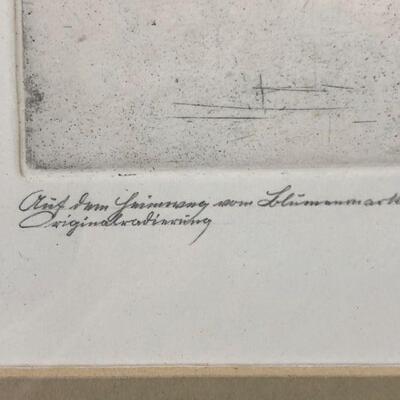 Auf dem Heimweg vom Blumenmarkt
Originalradierung